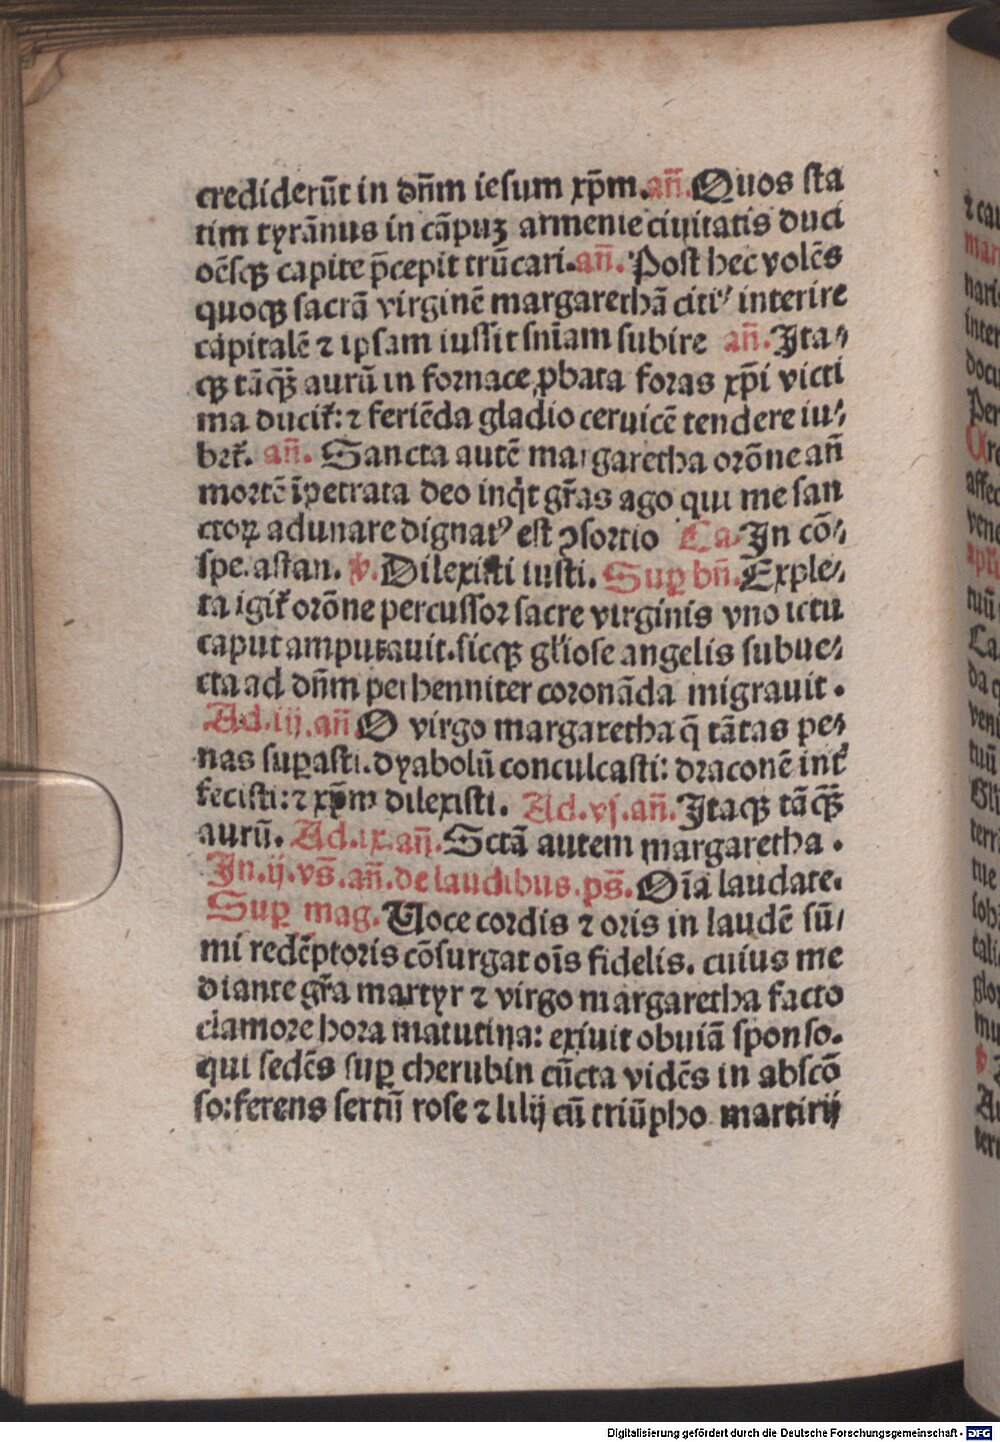 crediderūt in dn̄m iesum xp̄m. an̄. Quos sta
tim tyrānus in cāpuꝫ armenie ciuitatis duci
oēsqꝫ capite p̄cepit trūcari. an̄. Post hec volēs
quoqꝫ sacrā virginē margarethā citiꝰ interire
capitalē ⁊ ipsam iussit sn̄iam subire an̄. Ita⸗
qꝫ tāqꝫ̄ aurū in fornace ꝓbata foras xp̄i victi
ma ducit᷑: ⁊ feriēda gladio ceruicē tendere iu⸗
bet᷑. an̄. Sancta autē margaretha orōne an̄
mortē īpetrata deo inq̇t gr̄as ago qui me san
ctoꝝ adunare dignatꝰ est ꝯsortio Ca. In cō⸗
spe. astan. ℣. Dilexisti iusti. Suꝑ bn̄. Exple⸗
ta igit᷑ orōne percussor sacre virginis vno ictu
caput amputauit. sicqꝫ gl̄iose angelis subue⸗
cta ad dn̄m perhenniter coronāda migrauit.
Ad. iij. an̄ O virgo margaretha q̄ tātas pe⸗
nas suꝑasti. dyabolū conculcasti: draconē int᷑
fecisti: ⁊ xp̄m dilexisti. Ad. vj. an̄. Itaqꝫ tāqꝫ̄
aurū. Ad. ix. an̄. Sctā autem margaretha.
In. ij. vs̄. an̄. de laudibus. ps̄. Oīa laudate.
Suꝑ mag. Uoce cordis ⁊ oris in laudē sū⸗
mi redēptoris cōsurgat oīs fidelis. cuius me
diante gr̄a martyr ⁊ virgo margaretha facto
clamore hora matutina: exiuit obuiā sponso.
qui sedēs suꝑ cherubin cūcta vidēs in abscō
so: ferens sertū rose ⁊ lilij cū triūpho martirij
Digitalisierung gefördert durch die Deutsche Forschungsgemeinschaft - DFG